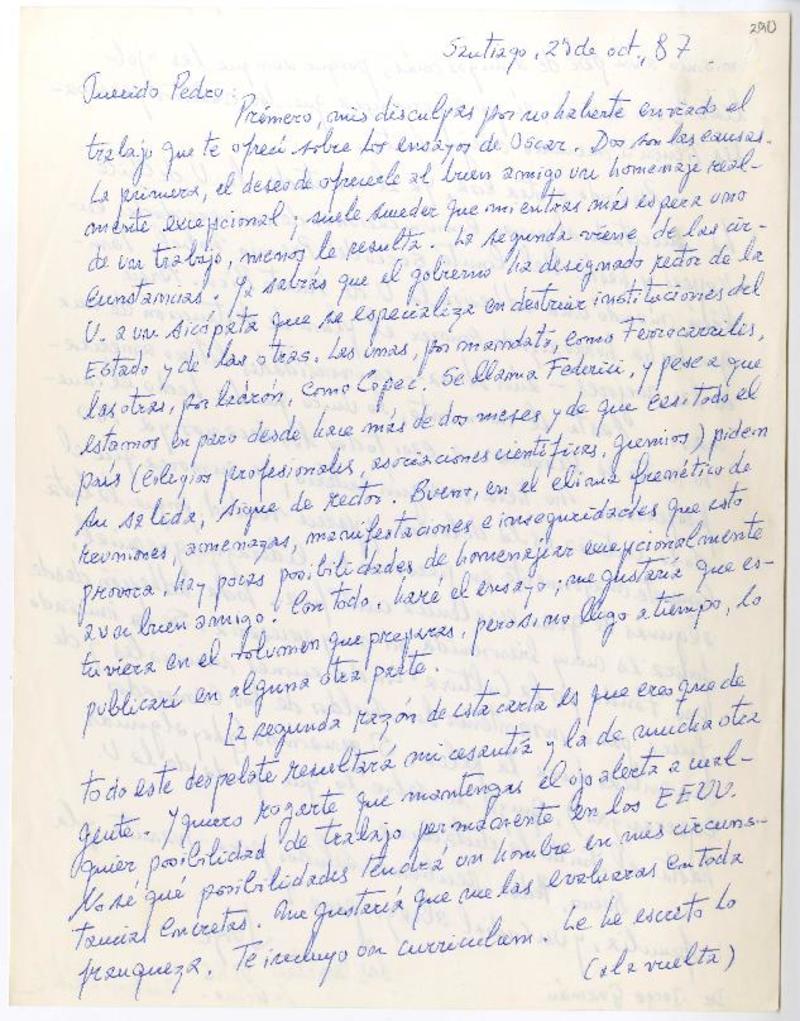 290
Santiago, 25 de oct., 87
Querido Pedro:
Primero, mis disculpas por no haberte enviado el
trabajo que te ofrecí sobre los ensayos de Oscar. Dos son las causas.
La primera, el deseo de ofrecerle al buen amigo un homenaje real-
mente excepcional; suele suceder que mientras más espera uno
de un trabajo, menos le resulta. La segunda viene de las cir-
cunstancias. Ya sabrás que el gobierno ha designado rector de la
U. a un sicópata que se especializa en destruir instituciones del
Estado y de las otras. Las unas, por mandato, como Ferrocarriles,
las otras, por ladrón, como Copec. Se llama Federici, y pese a que
estamos en paro desde hace más de dos meses y de que casi todo el
país (Colegios profesionales, asociaciones científicas, gremios) piden
su salida, sigue de rector. Bueno, en el clima frenético de
reuniones, amenazas, manifestaciones e inseguridades que esto
provoca, hay pocas posibilidades de homenajear excepcionalmente
a un buen amigo. Con todo, haré el ensayo, me gustaría que es-
tuviera en el volumen que preparas, pero si no llego a tiempo, lo
publicaré en alguna otra parte.
La segunda razón de esta carta es que creo que de
todo este despelote resultará mi cesantía y la de mucha otra
gente. Y quiero rogarte que mantengas el ojo alerta a cual-
quier posibilidad de trabajo permanente en los EEUU.
No sé qué posibilidades tendrá un hombre en mis circuns-
tancias concretas. Me gustaría que me las evaluaras en toda
franqueza. Te incluyo un curriculum. Le he escrito lo
(a la vuelta)